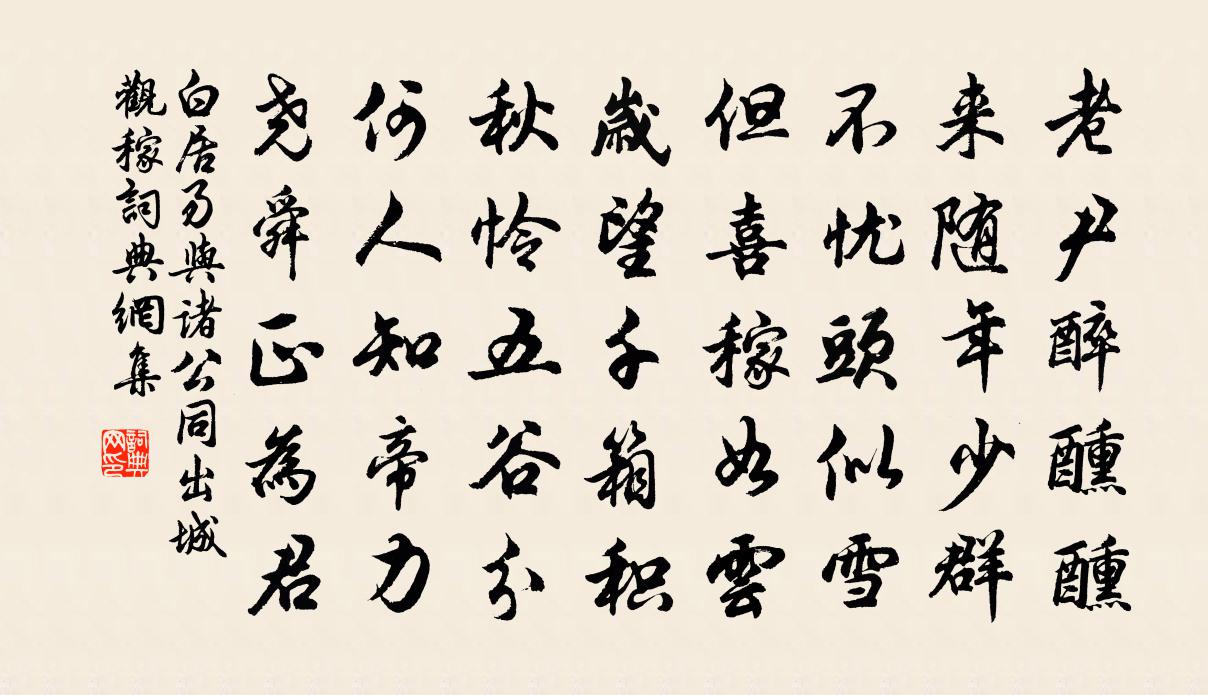 老尹醉醺醺
来随年少群
不忧頭似雪
但喜稼如雲
歲望千箱积
秋怜五谷分
何人知帝力
尧舜正為君
白居易與诸公同出城
觀稼詞典網集
詞典
网印